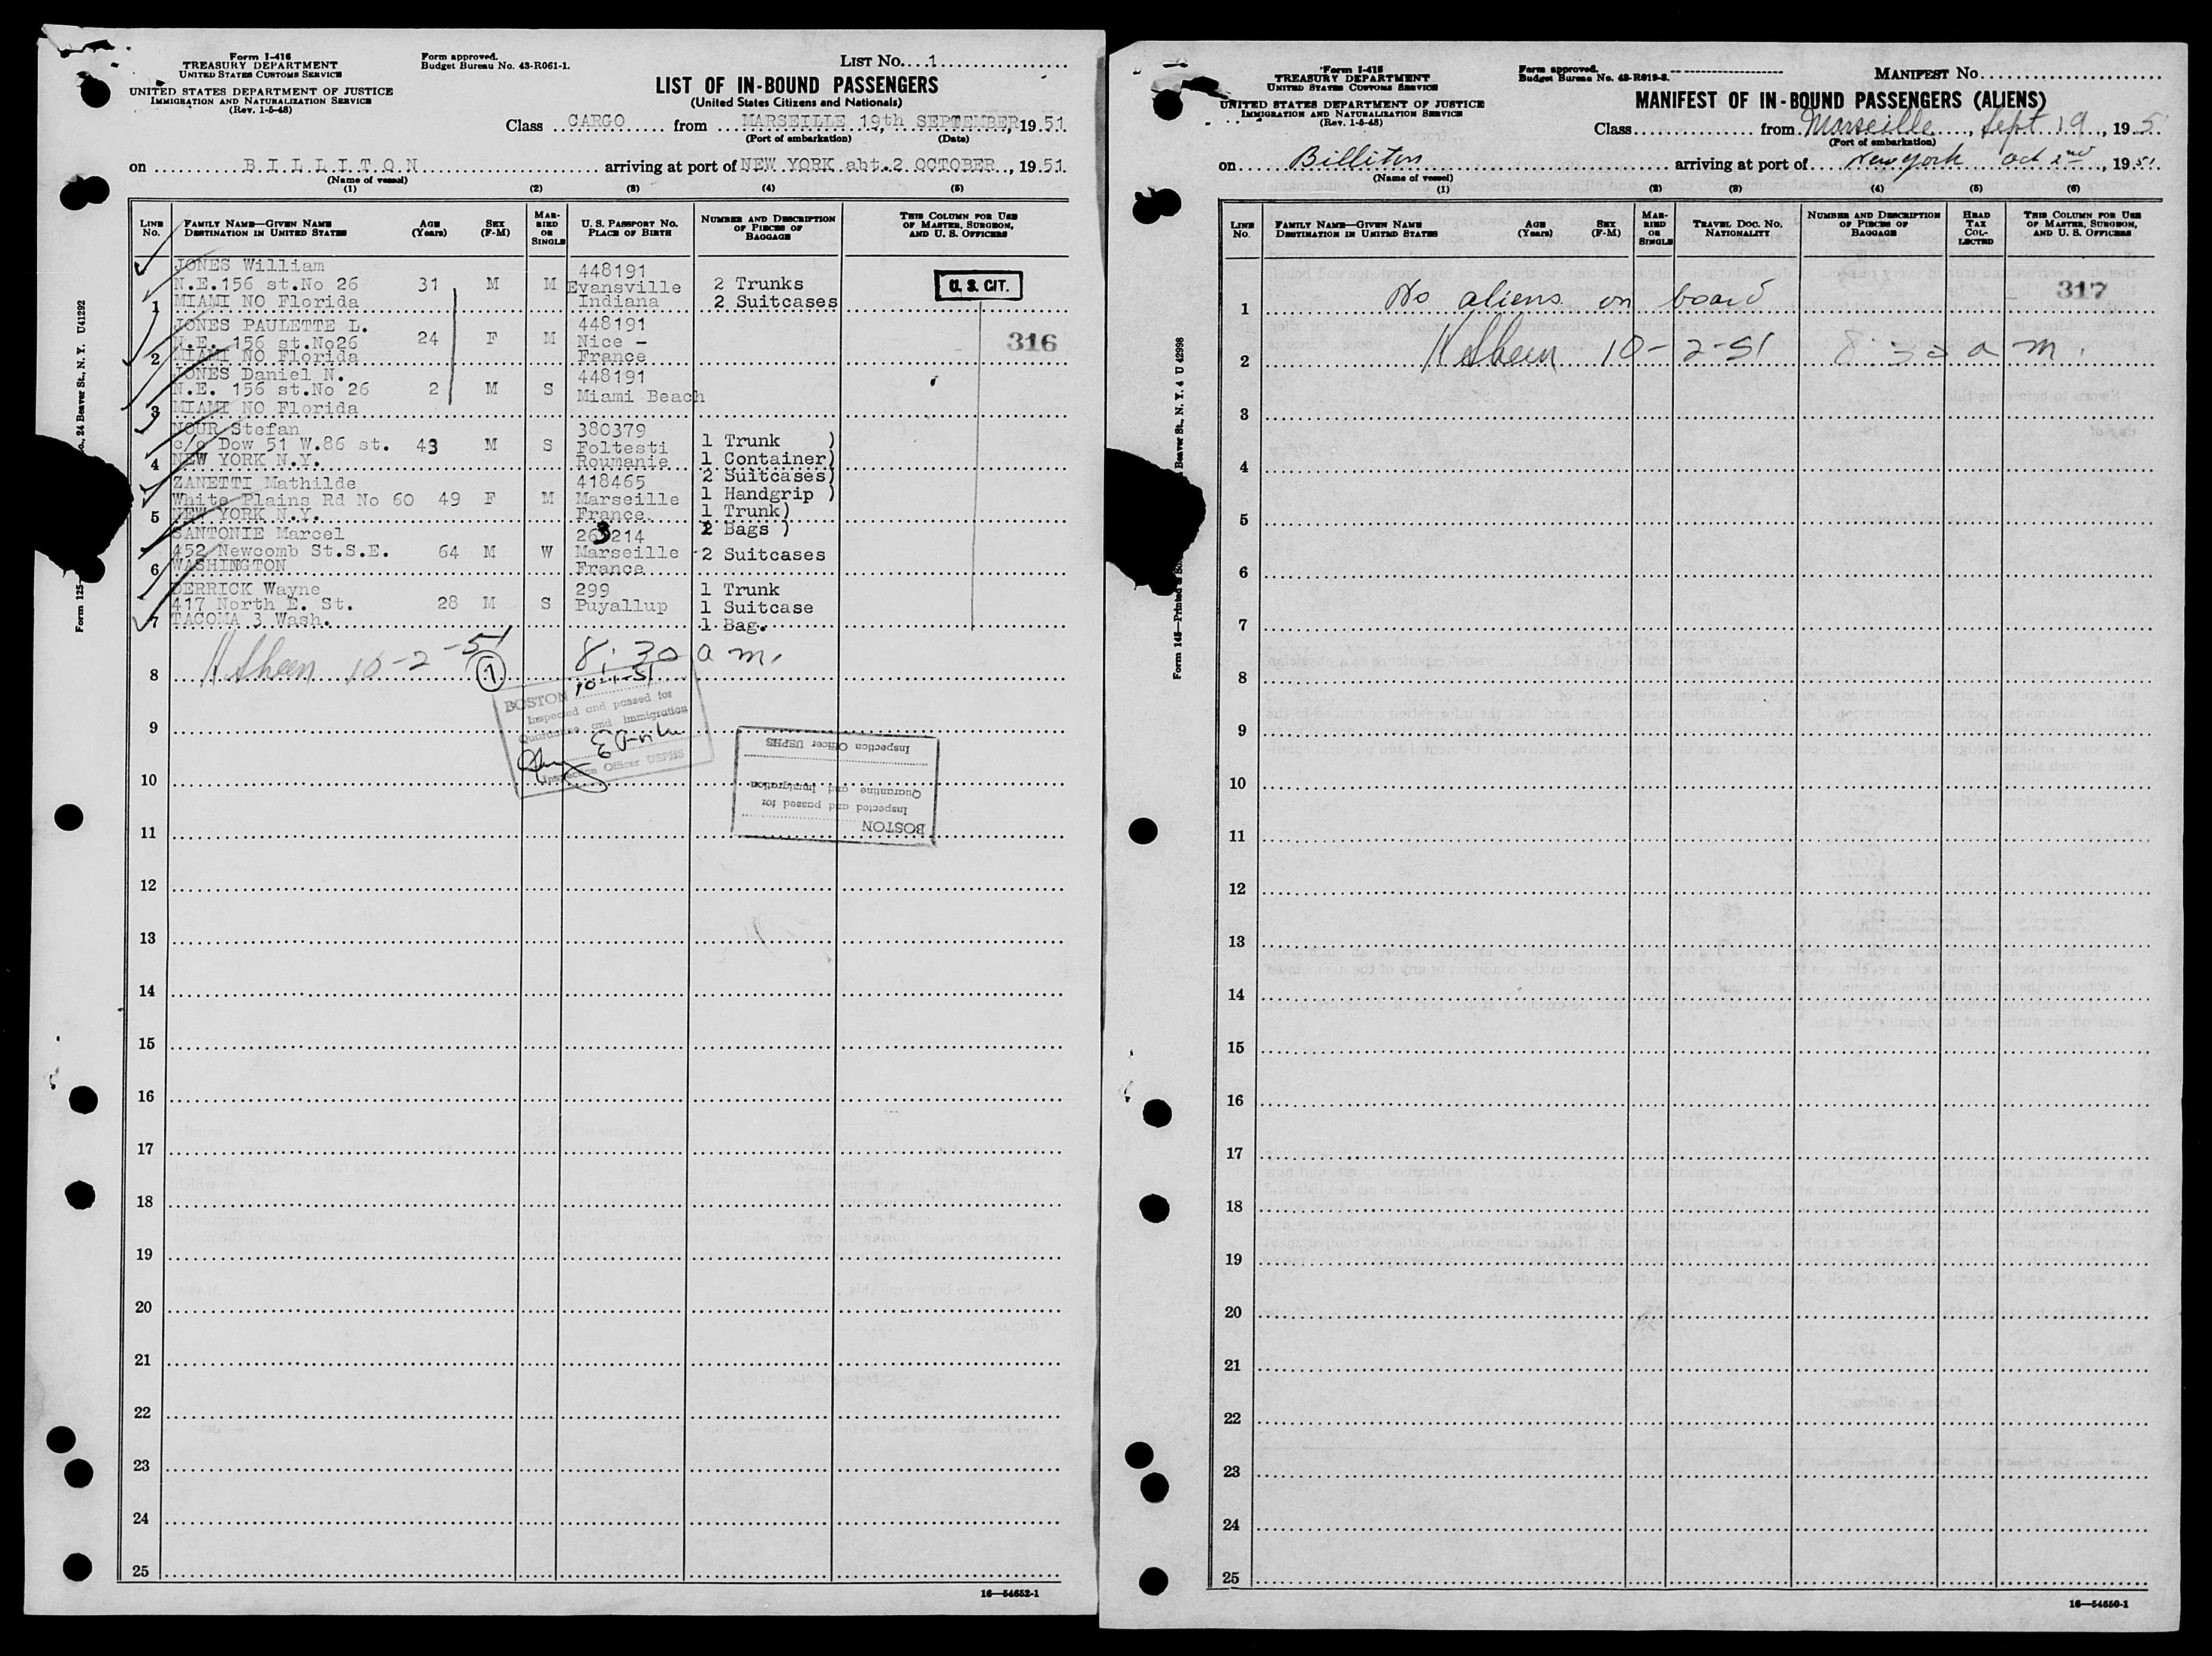 Form I-416
TREASURY DEPARTMENT
UNITED STATES CUSTOMS SERVICE
UNITED STATES DEPARTMENT OF JUSTICE
IMMIGRATION AND NATURALIZATION SERVICE
(Rev. 1-5-48)
Form approved.
Budget Bureau No. 43-R061-1.
LIST No. 1
LIST OF IN-BOUND PASSENGERS
(United States Citizens and Nationals)
Class CARGO from MARSEILLE 19th SEPTEMBER, 1951
(Port of embarkation) (Date)
on BILLITON arriving at port of NEW YORK abt. 2 OCTOBER, 1951
(Name of vessel)
(1) (2) (3) (4) (5)
LINE No. FAMILY NAME—GIVEN NAME DESTINATION IN UNITED STATES AGE (Years) SEX (F-M) MARRIED OR SINGLE U. S. PASSPORT No. PLACE OF BIRTH NUMBER AND DESCRIPTION OF PIECES OF BAGGAGE THIS COLUMN FOR USE OF MASTER, SURGEON, AND U. S. OFFICERS
JONES William 448191
N.E.156 st.No 26 31 M M Evansville 2 Trunks U. S. CIT.
1 MIAMI NO Florida Indiana 2 Suitcases
JONES PAULETTE L. 448191
N.E. 156 st.No26 24 F M Nice - 316
2 MIAMI NO Florida France
JONES Daniel N. 448191
N.E. 156 st.No 26 2 M S Miami Beach
3 MIAMI NO Florida
NOUR Stefan 380379 1 Trunk )
c/o Dow 51 W.86 st. 43 M S Foltesti 1 Container)
4 NEW YORK N.Y. Roumanie 2 Suitcases)
ZANETTI Mathilde 418465 1 Handgrip )
White Plains Rd No 60 49 F M Marseille 1 Trunk)
5 NEW YORK N.Y. France 2 Bags )
SANTONIE Marcel 263214
452 Newcomb St.S.E. 64 M W Marseille 2 Suitcases
6 WASHINGTON France
DERRICK Wayne 299 1 Trunk
417 North E. St. 28 M S Puyallup 1 Suitcase
7 TACOMA 3 Wash. 1 Bag.
H Sheen 10-2-51 8:30 a m.
7
8
BOSTON 10-1-51
Inspected and passed for
Quarantine and Immigration
Inspection Officer USPHS
9
BOSTON
Inspected and passed for
Quarantine and Immigration
Inspection Officer USPHS
10
11
12
13
14
15
16
17
18
19
20
21
22
23
24
25
16—54652-1
24 Beaver St., N. Y. U41292
Form 125—
Form I-415
TREASURY DEPARTMENT
UNITED STATES CUSTOMS SERVICE
UNITED STATES DEPARTMENT OF JUSTICE
IMMIGRATION AND NATURALIZATION SERVICE
(Rev. 1-5-48)
Form approved.
Budget Bureau No. 43-R019-8.
MANIFEST No.
MANIFEST OF IN-BOUND PASSENGERS (ALIENS)
Class from Marseille, Sept 19, 195
(Port of embarkation)
on Billiton arriving at port of New York oct 2nd, 1951
(Name of vessel)
(1) (2) (3) (4) (5) (6)
LINE No. FAMILY NAME—GIVEN NAME DESTINATION IN UNITED STATES AGE (Years) SEX (F-M) MARRIED OR SINGLE TRAVEL DOC. No. NATIONALITY NUMBER AND DESCRIPTION OF PIECES OF BAGGAGE HEAD TAX COLLECTED THIS COLUMN FOR USE OF MASTER, SURGEON, AND U. S. OFFICERS
1 No aliens on board 317
2 H Sheen 10-2-51 8:30 a m.
3
4
5
6
7
8
9
10
11
12
13
14
15
16
17
18
19
20
21
22
23
24
25
16—54650-1
Beaver St., N. Y. 4 U 42998
Form 145—Printed